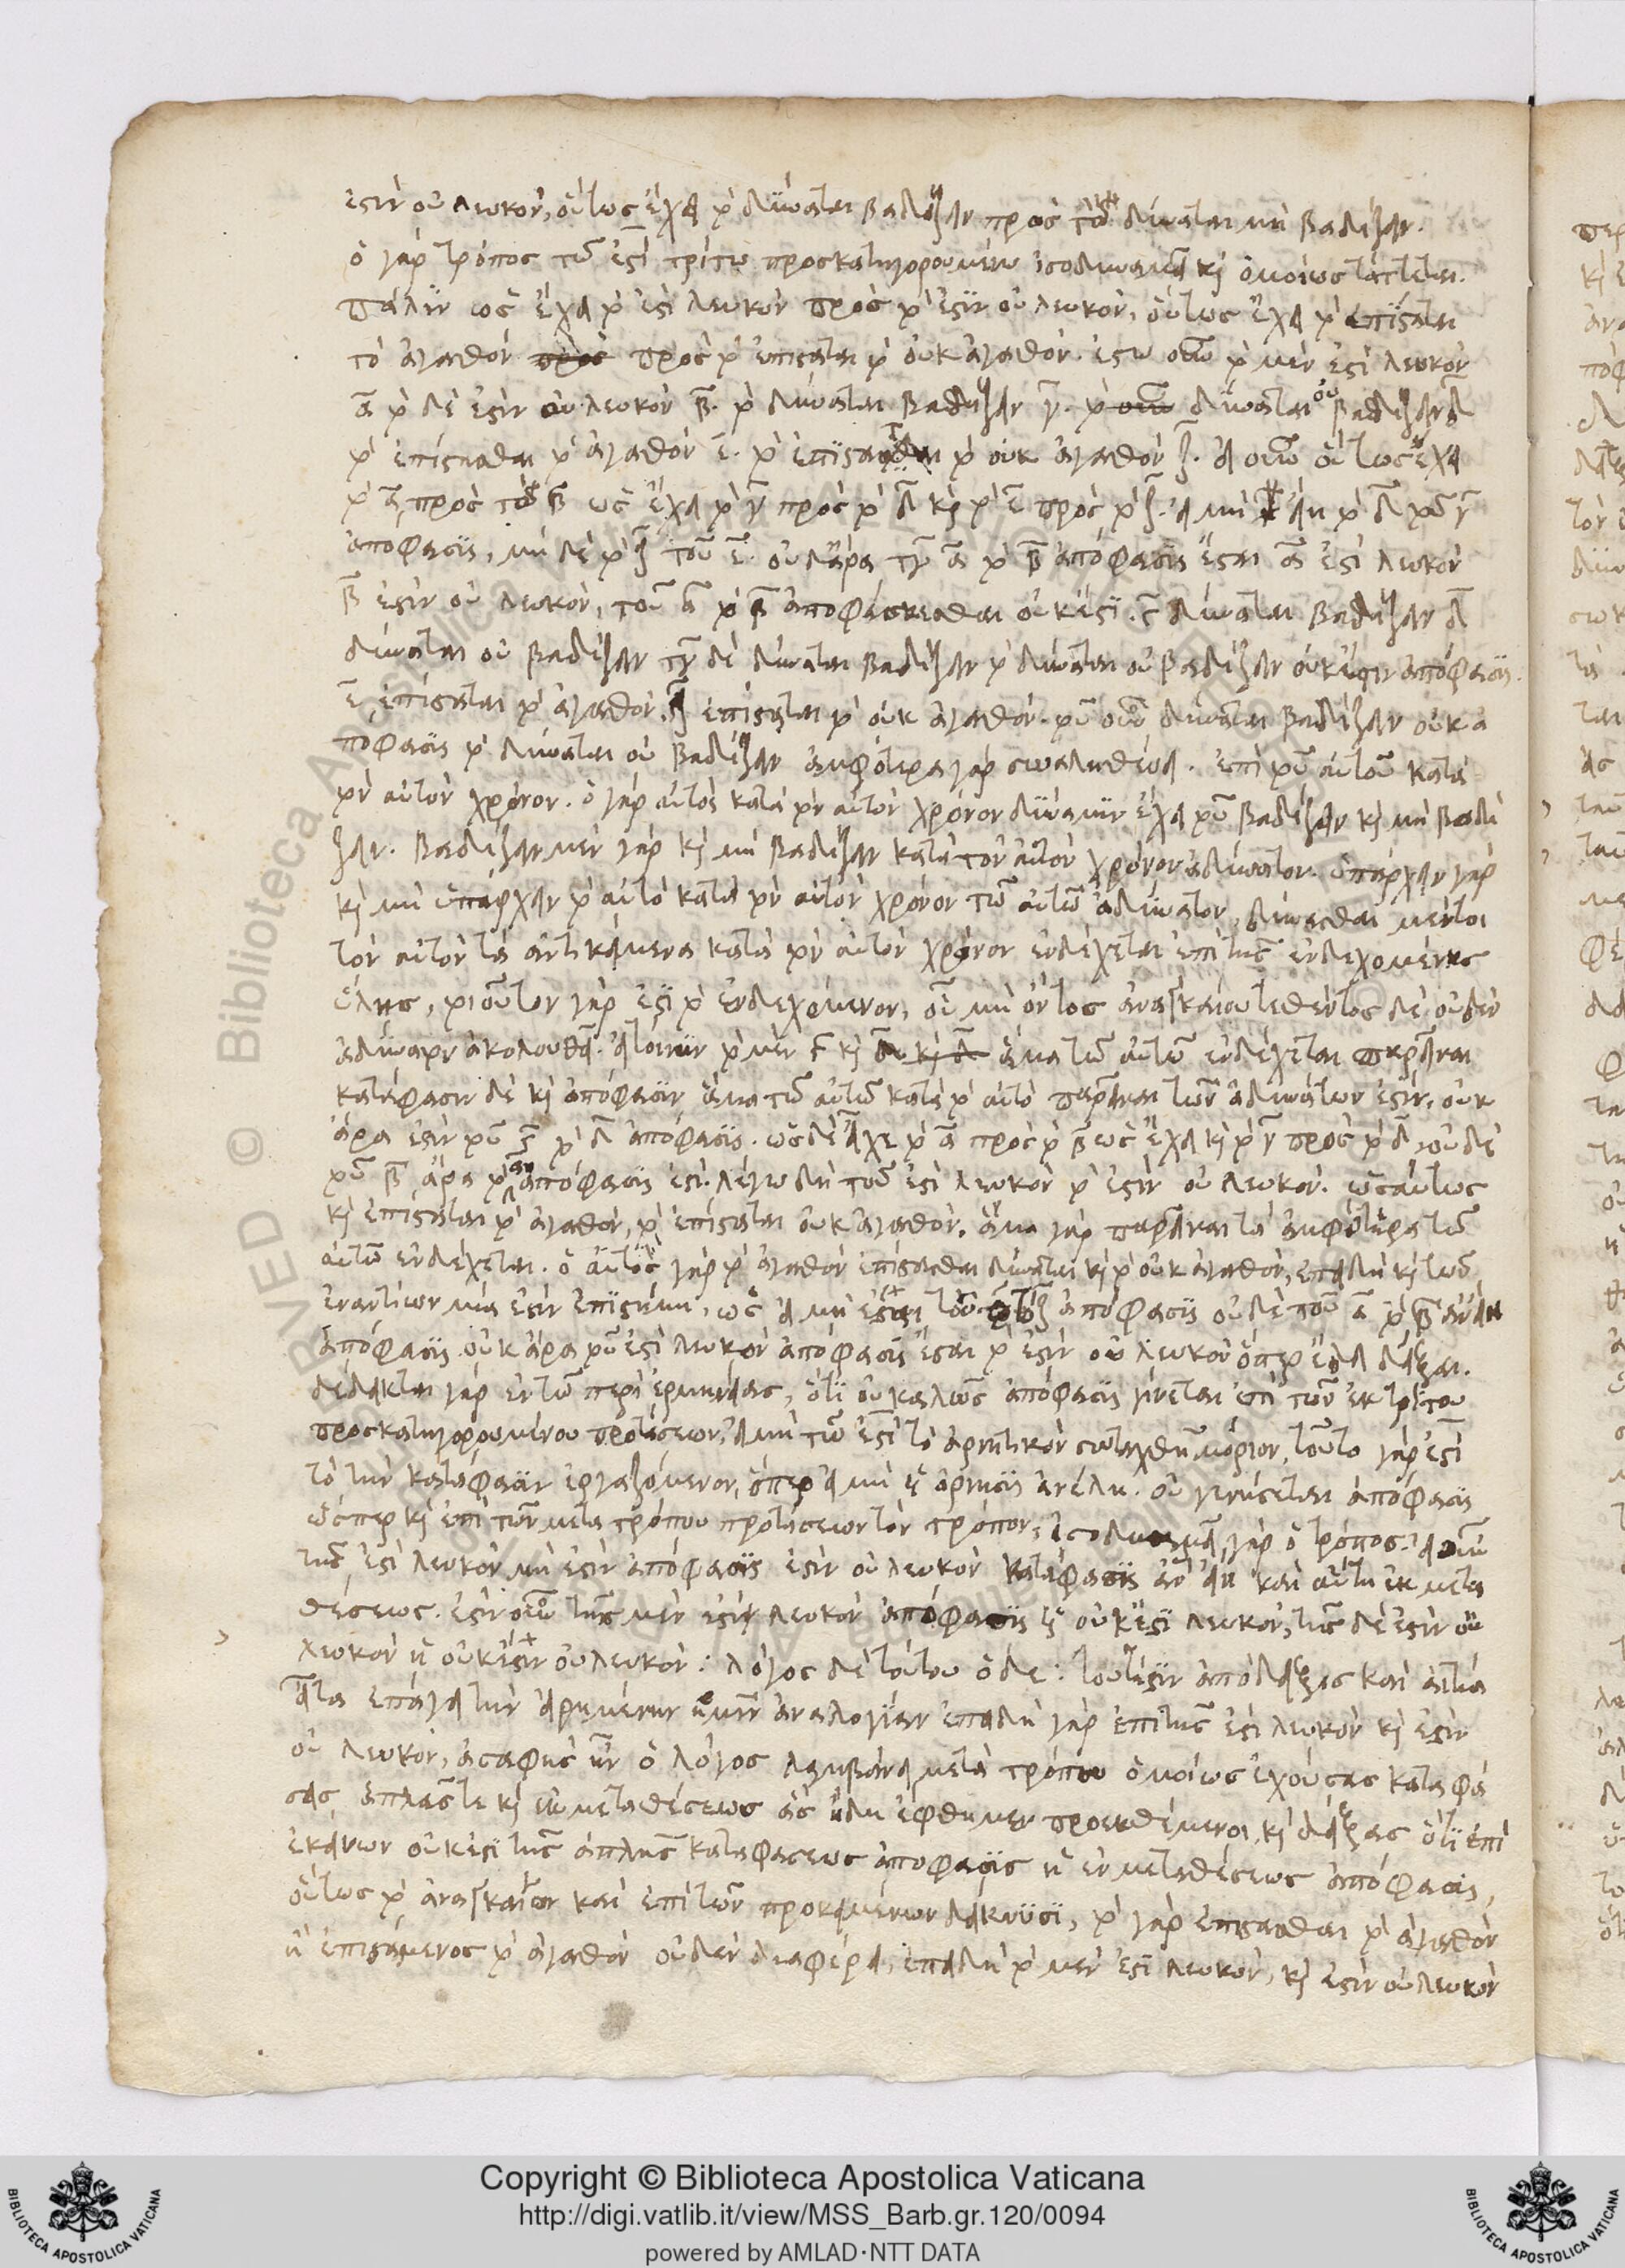 ἐστὶν οὐ λευκὸν, οὕτως ἔχει τὸ δύναται βαδίζειν πρὸς τὸ δύναται μὴ βαδίζειν.
ὁ γὰρ τρόπος τῶ ἐστὶ τρίτω προσκατηγορουμένω ἰσοδυναμεῖ κὶ ὁμοίως τάττεται.
πάλιν ὡς ἔχει τὸ ἐστὶ λευκὸν πρὸς τὸ ἐστὶν οὐ λευκὸν, οὕτως ἔχει τὸ ἐπίσταται
τὸ ἀγαθὸν πρὸς πρὸς τὸ ἐπίσταται τὸ οὐκ ἀγαθὸν. ἔστω οὖν τὸ μὲν ἐστὶ λευκὸν
α τὸ δὲ ἐστὶν οὐ λευκὸν β. τὸ δύναται βαδίζειν γ. τὸ οὖν δύναται οὐ βαδίζειν δ
τὸ ἐπίστασθαι τὸ ἀγαθὸν ε. τὸ ἐπίσταται τὸ οὐκ ἀγαθὸν ζ. εἰ οὖν οὕτως ἔχει
τὸ α πρὸς τὸ β ὡς ἔχει τὸ γ πρὸς τὸ δ κὶ τὸ ε πρὸς τὸ ζ. εἰ μὴ εἴη τὸ δ τοῦ γ
ἀπόφασις, μὴ δὲ τὸ ζ τοῦ ε. οὐδ' ἄρα τοῦ α τὸ β ἀπόφασις ἔσται α ἐστὶ λευκὸν
β ἐστὶν οὐ λευκὸν, τοῦ α τὸ β ἀποφάσκεσθαι οὐκ ἔστι. γ δύναται βαδίζειν δ
δύναται οὐ βαδίζειν τοῦ δὲ δύναται βαδίζειν τὸ δύναται οὐ βαδίζειν οὐκ ἔστιν ἀπόφασις.
ε ἐπίσταται τὸ ἀγαθὸν. ζ ἐπίσταται τὸ οὐκ ἀγαθὸν. τοῦ οὖν δύναται βαδίζειν οὐκ ἀ
πόφασις τὸ δύναται οὐ βαδίζειν ἀμφότερα γὰρ συναληθεύει. ἐπὶ τοῦ αὐτοῦ κατὰ
τὸν αὐτὸν χρόνον. ὁ γὰρ αὐτὸς κατὰ τὸν αὐτὸν χρόνον δύναμιν ἔχει τοῦ βαδίζειν κὶ μὴ βαδί
ζειν. βαδίζειν μὲν γὰρ κὶ μὴ βαδίζειν κατὰ τὸν αὐτὸν χρόνον ἀδύνατον. ὑπάρχειν γὰρ
κὶ μὴ ὑπάρχειν τὸ αὐτὸ κατὰ τὸν αὐτὸν χρόνον τῶ αὐτῶ ἀδύνατον, δύνασθαι μέντοι
τὸν αὐτὸν τὰ ἀντικείμενα κατὰ τὸν αὐτὸν χρόνον ἐνδέχεται ἐπὶ τῆς ἐνδεχομένης
ὕλης, τοιοῦτον γὰρ ἐστὶ τὸ ἐνδεχόμενον, οὗ μὴ ὄντος ἀναγκαίου τεθέντος δὲ οὐδὲν
ἀδύνατον ἀκολουθεῖ. εἰ τοίνυν τὸ μὲν γ κὶ δ κὶ δ ἅμα τῶ αὐτῶ ἐνδέχεται παρεῖναι
κατάφασιν δὲ κὶ ἀπόφασιν ἅμα τῶ αὐτῶ κατὰ τὸ αὐτὸ παρεῖναι τῶν ἀδυνάτων ἐστὶν, οὐκ
ἄρα ἐστὶν τοῦ γ τὸ δ ἀπόφασις. ὡς δὲ εἶχε τὸ α πρὸς τὸ β ὡς ἔχει κὶ τὸ γ πρὸς τὸ δ, οὐδὲ
τοῦ β ἄρα τὸ α ἀπόφασις ἐστὶ. λέγω δὴ τοῦ ἐστὶ λευκὸν τὸ ἐστὶν οὐ λευκὸν. ὡσαύτως
κὶ ἐπίσταται τὸ ἀγαθὸν, τὸ ἐπίσταται οὐκ ἀγαθὸν. ἅμα γὰρ παρεῖναι τὰ ἀμφότερα τῶ
αὐτῶ ἐνδέχεται. ὁ αὐτὸς γὰρ τὸ ἀγαθὸν ἐπίστασθαι δύναται κὶ τὸ οὐκ ἀγαθὸν, ἐπειδὴ κὶ τῶν
ἐναντίων μία ἐστὶν ἐπιστήμη, ὡς εἰ μὴ ἔσται τοῦ ε τὸ ζ ἀπόφασις οὐδὲ τοῦ α τὸ β ἂν εἴη
ἀπόφασις οὐκ ἄρα τοῦ ἐστὶ λευκὸν ἀπόφασις ἔσται τὸ ἐστὶν οὐ λευκὸν ὅπερ ἔδει δεῖξαι.
δέδεικται γὰρ ἐν τῶ περὶ ἑρμηνείας, ὅτι οὐ καλῶς ἀπόφασις γίνεται ἐπὶ τῶν ἐκ τρίτου
προσκατηγορουμένου προτάσεων, εἰ μὴ τῶ ἐστὶ τὸ ἀρνητικὸν συνταχθῆ μόριον, τοῦτο γὰρ ἐστὶ
τὸ τὴν κατάφασιν ἐργαζόμενον, ὅπερ εἰ μὴ ἡ ἄρνησις ἀνέλη. οὐ γενήσεται ἀπόφασις
ὥσπερ κὶ ἐπὶ τῶν μετα τρόπου προτάσεων τὸν τρόπον, ἰσοδυναμεῖ γὰρ ὁ τρόπος. εἰ οὖν
τῆς ἐστὶ λευκὸν μὴ ἐστὶν ἀπόφασις ἐστὶν οὐ λευκὸν κατάφασις ἂν εἴη καὶ αὕτη ἐκ μετα
θέσεως. ἐστὶν οὖν τῆς μὲν ἐστὶν λευκὸν ἀπόφασις ἡ οὐκ ἔστι λευκὸν, τῆς δὲ ἐστὶν οὐ
λευκὸν ἡ οὐκ ἔστιν οὐ λευκὸν: λόγος δὲ τούτου ὅδε: τουτέστιν ἀπόδειξις καὶ αἰτία
εἶτα ἐπάγει τὴν εἰρημένην ἡμῖν ἀναλογίαν ἐπειδὴ γὰρ ἐπὶ τῆς ἐστὶ λευκὸν κὶ ἐστὶν
οὐ λευκὸν, ἀσαφὴς ἦν ὁ λόγος λαμβάνει μετὰ τρόπου ὁμοίως ἐχούσας καταφά
σεις ἁπλᾶς τε κὶ ἐκ μεταθέσεως ἃς ἤδη ἔφθημεν προεκθέμενοι, κὶ δείξας ὅτι ἐπὶ
ἐκείνων οὐκ ἔστι τῆς ἁπλῆς καταφάσεως ἀπόφασις ἡ ἐκ μεταθέσεως ἀπόφασις,
οὕτως τὸ ἀναγκαῖον καὶ ἐπὶ τῶν προκειμένων δείκνυσι, τὸ γὰρ ἐπίστασθαι τὸ ἀγαθὸν
ἢ ἐπιστάμενος τὸ ἀγαθὸν οὐδὲν διαφέρει, ἐπειδὴ τὸ μὲν ἐστὶ λευκὸν, κὶ ἐστὶν οὐ λευκὸν
Copyright © Biblioteca Apostolica Vaticana
http://digi.vatlib.it/view/MSS_Barb.gr.120/0094
powered by AMLAD·NTT DATA
BIBLIOTECA APOSTOLICA VATICANA
BIBLIOTECA APOSTOLICA VATICANA